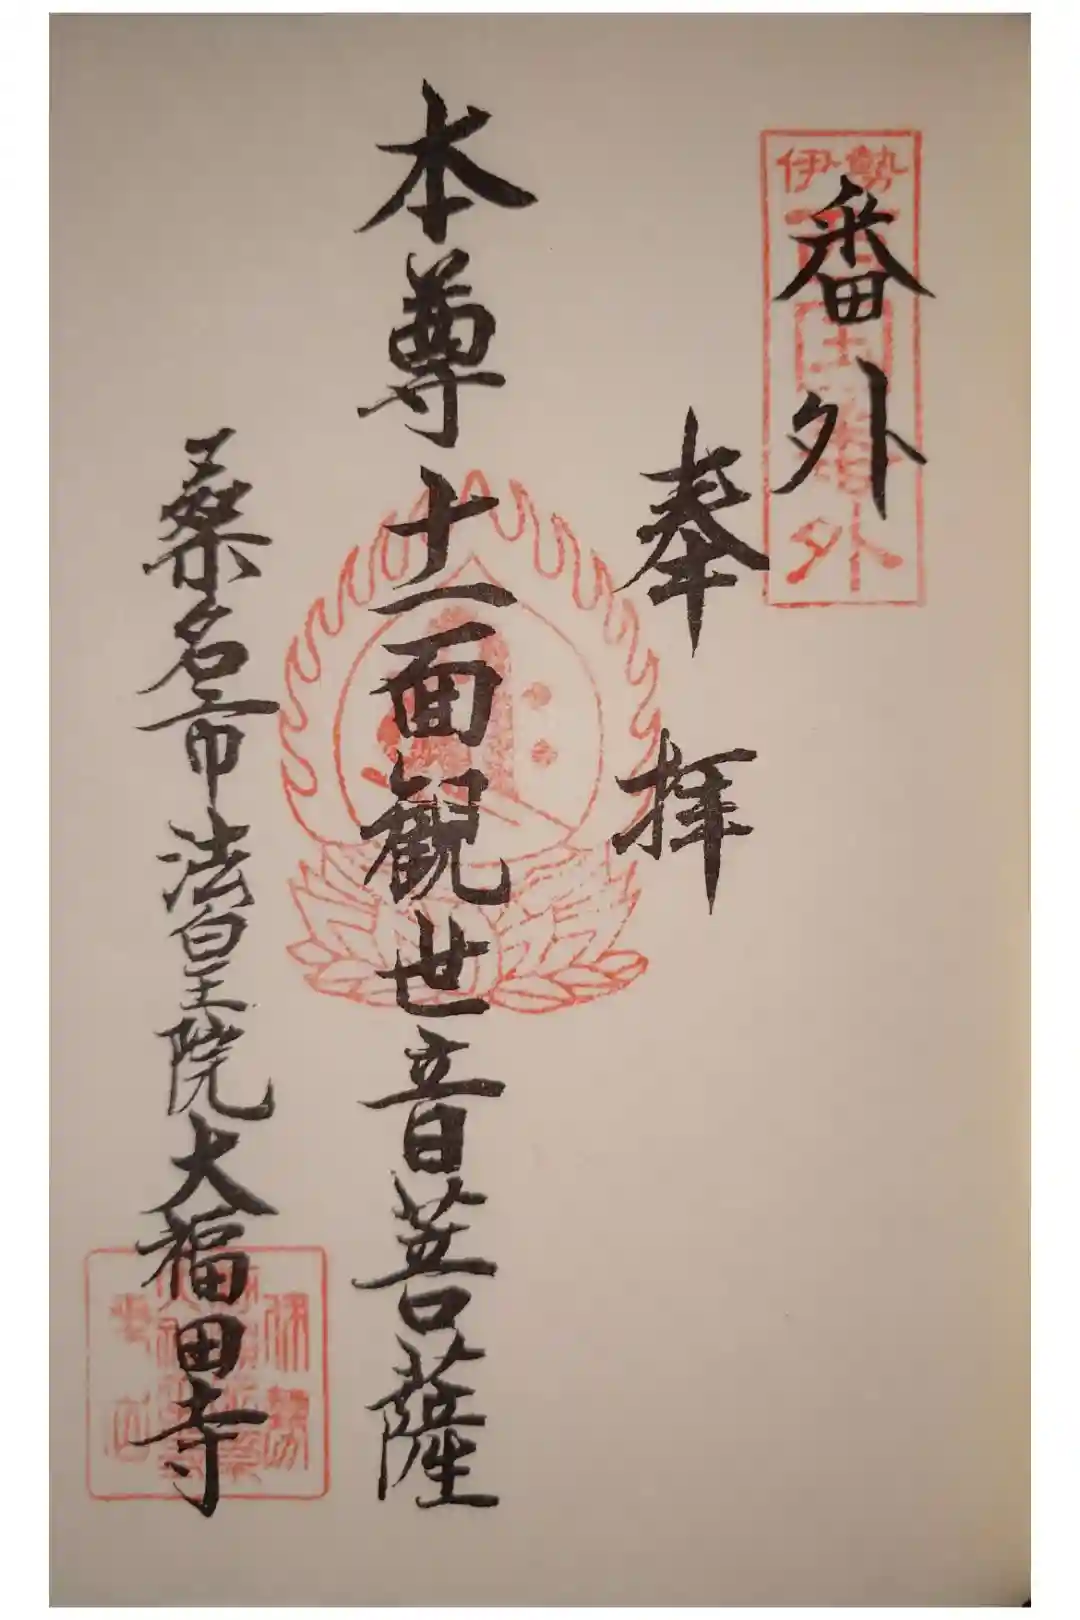 伊勢
番外
外
奉拝
本尊十一面観世音菩薩
桑名市法皇院大福田寺